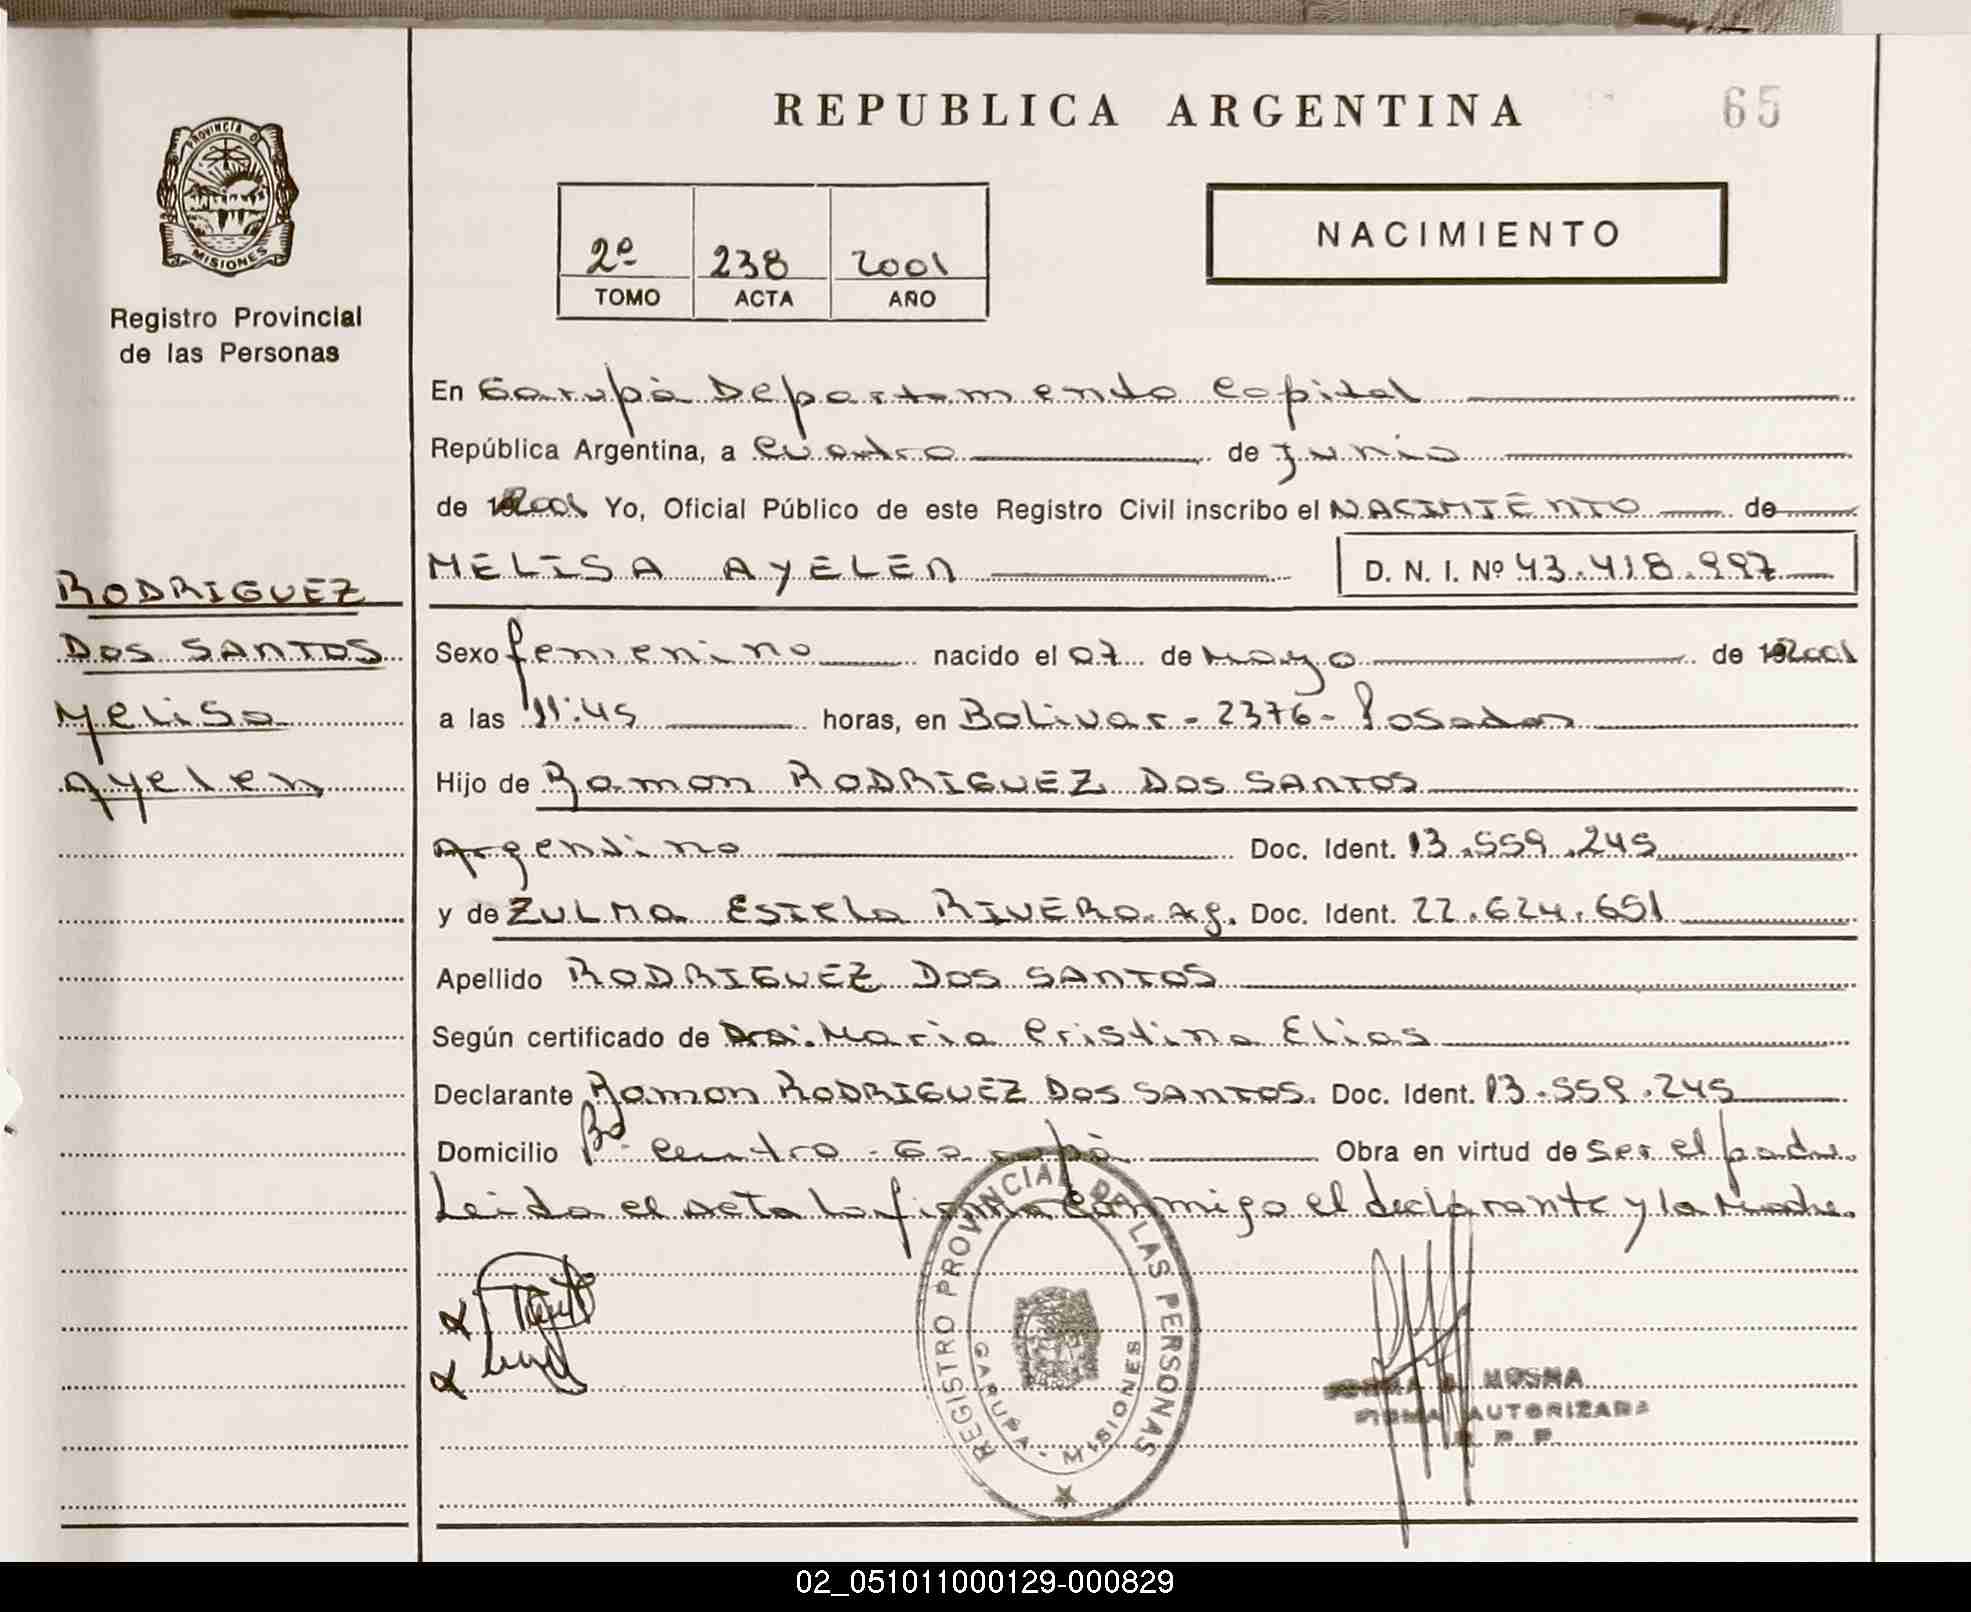 REPUBLICA ARGENTINA
65
PROVINCIA DE
MISIONES
Registro Provincial
de las Personas
2º 238 2001
TOMO ACTA AÑO
NACIMIENTO
En Garupá Departamento Capital
República Argentina, a Cuatro de Junio
de 2001 Yo, Oficial Público de este Registro Civil inscribo el NACIMIENTO de
MELISA AYELEN D. N. I. Nº 43.418.997
RODRIGUEZ
DOS SANTOS
Melisa
Ayelen
Sexo femenino nacido el 07 de Mayo de 2001
a las 11:45 horas, en Bolivar - 2376 - Posadas
Hijo de Ramon RODRIGUEZ DOS SANTOS
Argentino Doc. Ident. 13.559.245
y de ZULMA EStela RIVERO. Ag. Doc. Ident. 22.624.651
Apellido RODRIGUEZ DOS SANTOS
Según certificado de Dra. Maria Cristina Elias
Declarante Ramon RODRIGUEZ DOS SANTOS. Doc. Ident. 13.559.245
Domicilio Bº Centro - Garupá Obra en virtud de ser el padre.
Leida el acta la firma conmigo el declarante y la Madre.
REGISTRO PROVINCIAL DE LAS PERSONAS
GARUPA - MISIONES
MOSNA
FIRMA AUTORIZADA
R P P
02_051011000129-000829